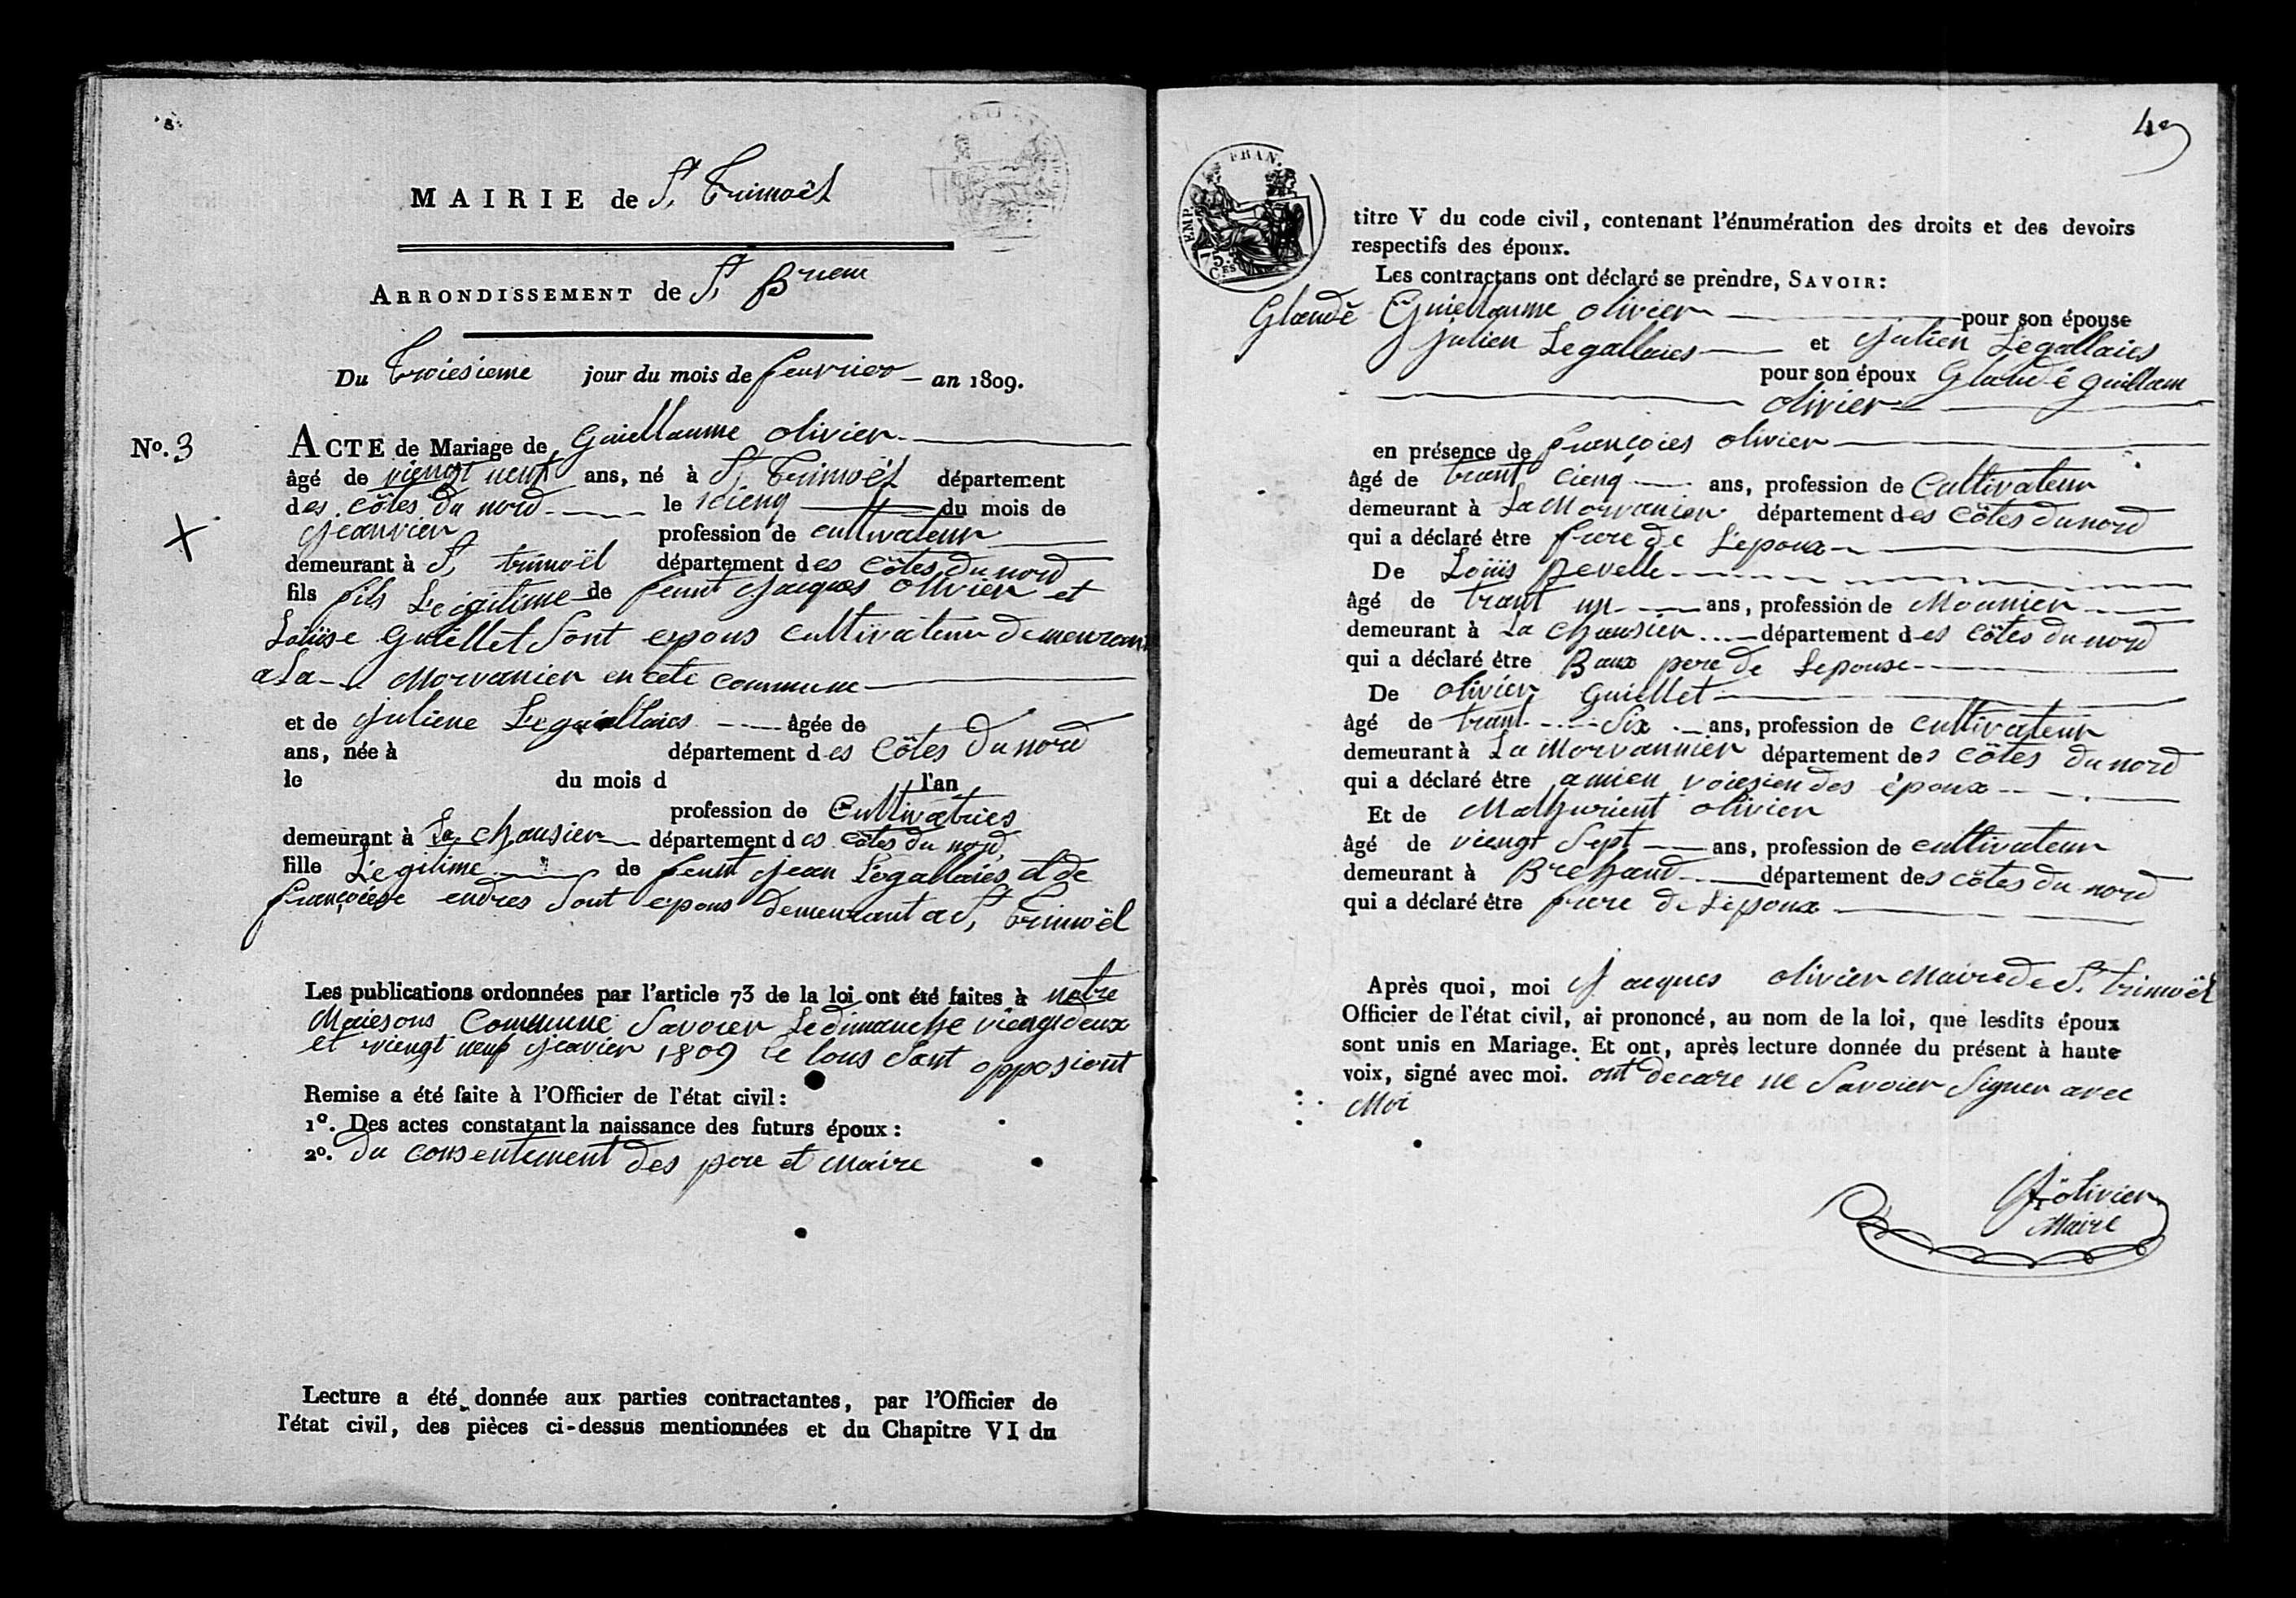 MAIRIE de St Trimoël
ARRONDISSEMENT de St Brieu
Du Troiesieme jour du mois de feuvrier an 1809.
No. 3
ACTE de Mariage de Guiellaume olivier
âgé de viengt neuf ans, né à St Trimoël département
des côtes du nord le
du mois de
Jeanvier profession de cultivateur
demeurant à St trimoël département des Côtes du nord
fils fils Legitime de feunt Jacques olivier et
Loüise Guiellet Sont epous cultivateur demeurant
a La Morvanier en cete commune
et de Juliene Legallaies âgée de
ans, née à département des Côtes du nord
le du mois d l'an
profession de Cultivatries
demeurant à La chausier département des côtes du nord
fille Legitime de feunt Jean Legallaiés et de
françoiese endres Sont epous demeurant a St Trimoël
Les publications ordonnées par l'article 73 de la loi ont été faites à notre
Maiesons Commune Savoier Ledimanche viengtdeux
et viengt neuf Jeavier 1809 Le tous Sant opposiont
Remise a été faite à l'Officier de l'état civil:
1º. Des actes constatant la naissance des futurs époux:
2º. du consentement des pere et Maire
Lecture a été donnée aux parties contractantes, par l'Officier de
l'état civil, des pièces ci-dessus mentionnées et du Chapitre VI du
EMP. FRAN.
75
CES
titre V du code civil, contenant l'énumération des droits et des devoirs
respectifs des époux.
Les contractans ont déclaré se prendre, SAVOIR:
Glaudé Guiellaume olivier pour son épouse
Julien Legallaies et Julien Legallaies
pour son époux Glaudé guillaum
olivier
en présence de françoies olivier
âgé de trant cienq ans, profession de Cultivateur
demeurant à La Morvanier département des Côtes du nord
qui a déclaré être frere de Lepoux
De Loüis revelle
âgé de trant un ans, profession de Mounier
demeurant à La chausier département des côtes du nord
qui a déclaré être Baux pere de Lepouse
De olivier Guiellet
âgé de trant Six ans, profession de cultivateur
demeurant à La Morvannier département des côtes du nord
qui a déclaré être amien voiesien des époux
Et de Mathurient olivier
âgé de viengt Sept ans, profession de cultivateur
demeurant à Brehand département des côtes du nord
qui a déclaré être frere de Lepoux
Après quoi, moi Jacques olivier Maire de St trimoël
Officier de l'état civil, ai prononcé, au nom de la loi, que lesdits époux
sont unis en Mariage. Et ont, après lecture donnée du présent à haute
voix, signé avec moi. ont decare ne Savoier Signer avec
Moi
J olivier
Maire